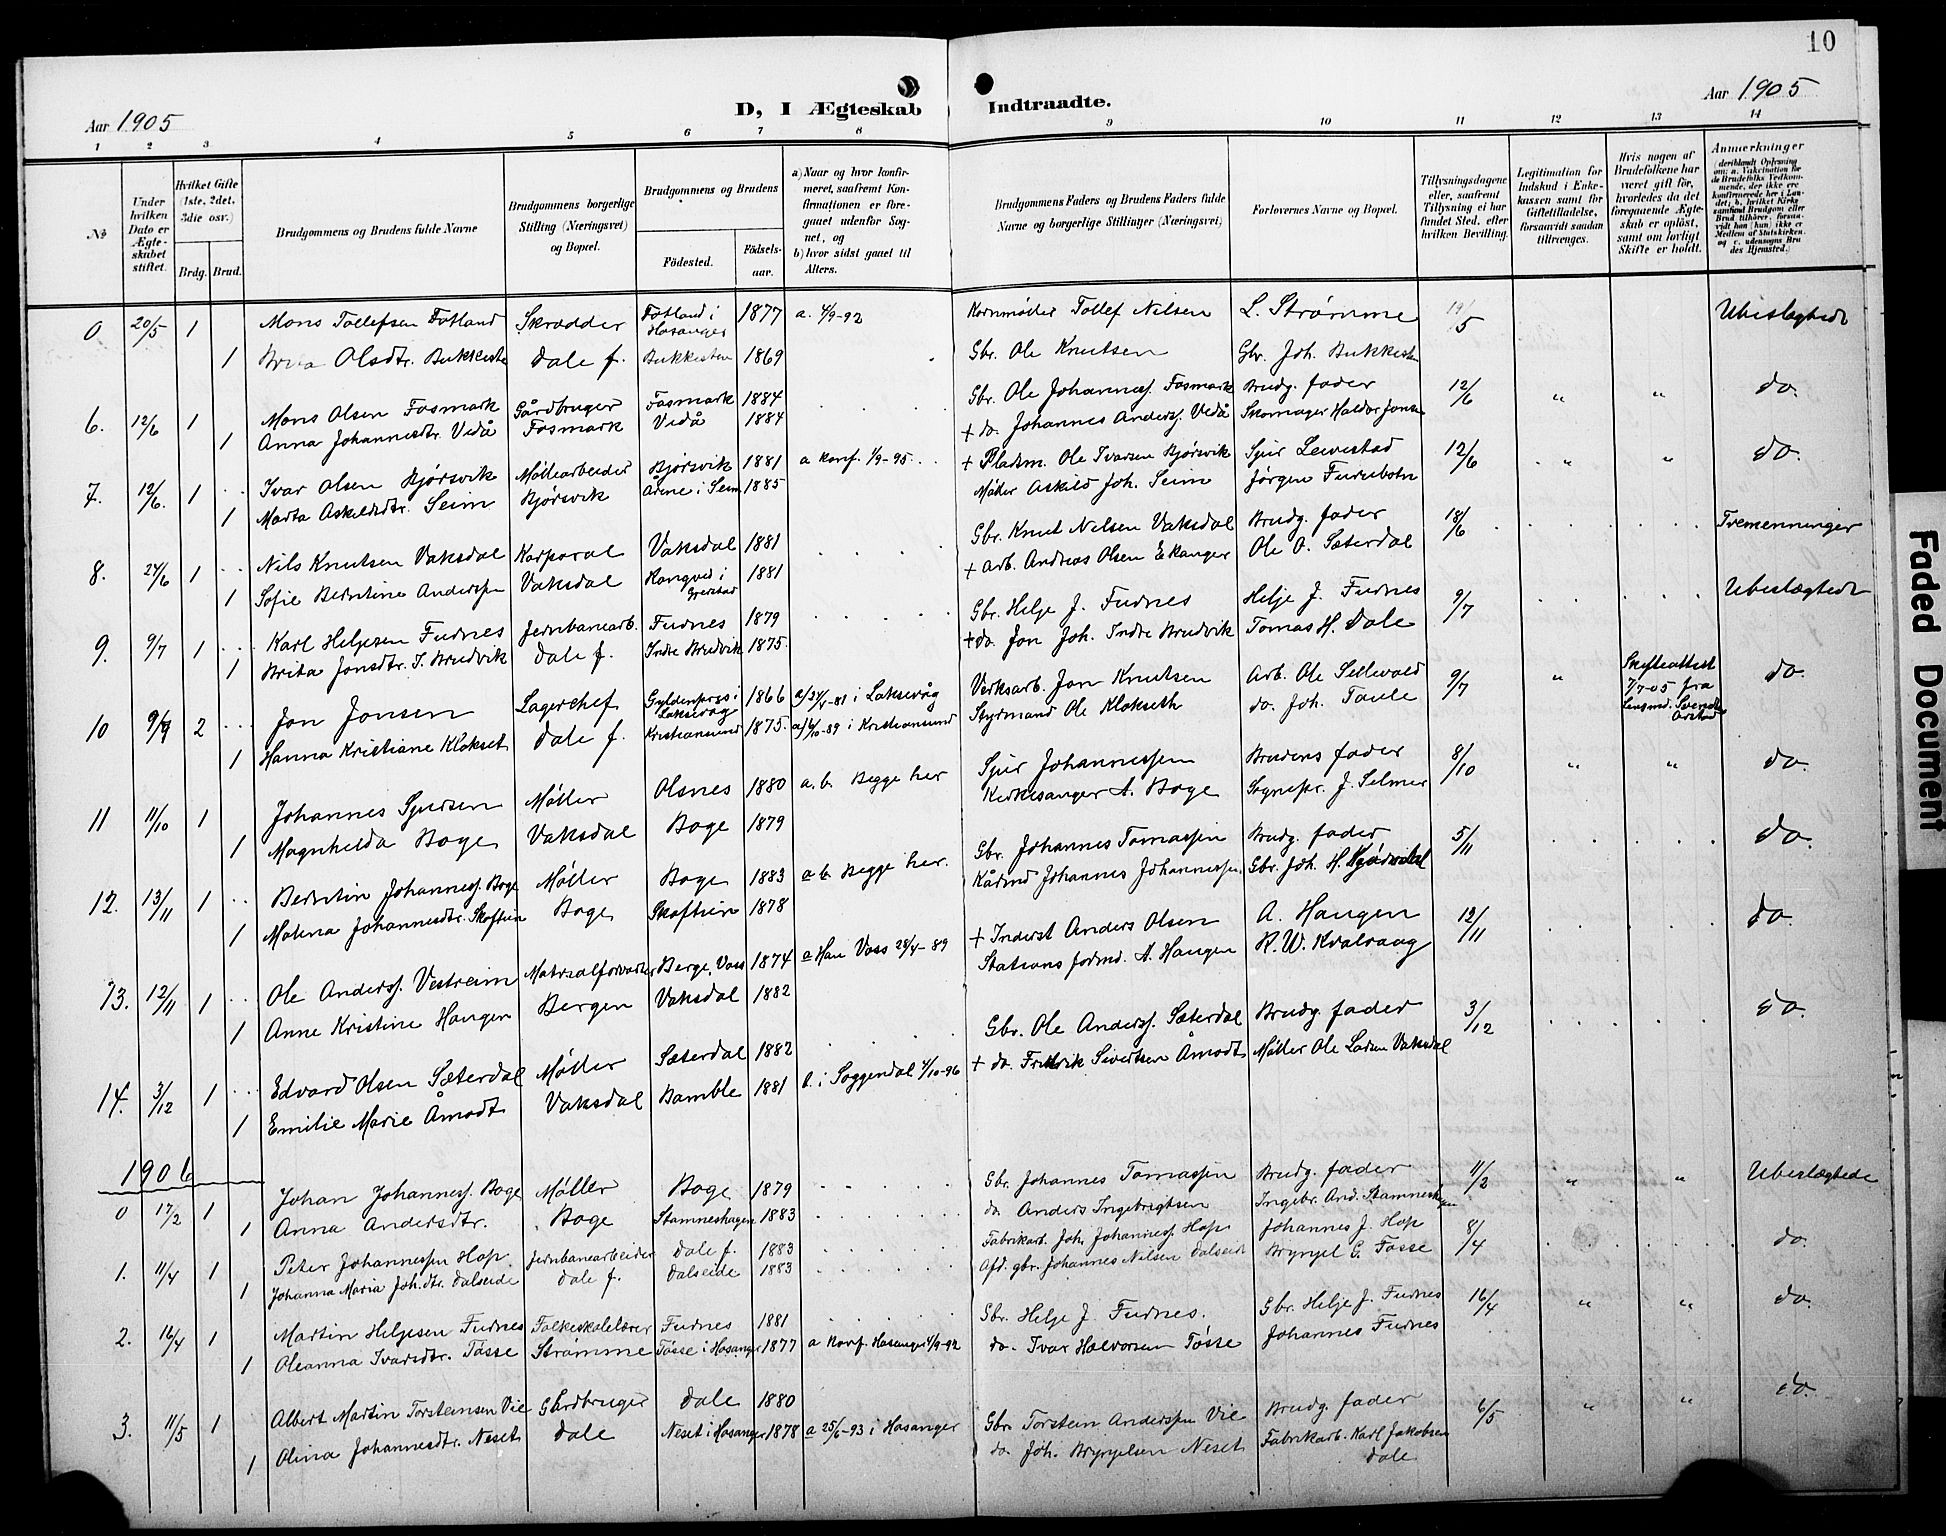 10
Aar 1905
D, I Ægteskab Indtraadte.
Aar 1905
1 2 3 4 5 6 7 8 9 10 11 12 13 14
No
Under hvilken Dato er Ægteskabet stiftet.
Hvilket Gifte (1ste, 2det, 3die osv.)
Brdg. Brud.
Brudgommens og Brudens fulde Navne
Brudgommens borgerlige Stilling (Næringsvei) og Bopæl.
Brudgommens og Brudens
Födested.
Födselsaar.
a) Naar og hvor konfirmeret, saafremt Konfirmationen er foregaaet udenfor Sognet, og
b) hvor sidst gaaet til Alters.
Brudgommens Faders og Brudens Faders fulde Navne og borgerlige Stillinger (Næringsvei)
Forlovernes Navne og Bopæl.
Tillysningsdagene eller, saafremt Tillysning ei har fundet Sted, efter hvilken Bevilling.
Legitimation for Indskud i Enkekassen samt for Giftetilladelse, forsaavidt saadan tiltrænges.
Hvis nogen af Brudefolkene har været gift för, hvorledes da det foregaaende Ægteskab er oplöst, samt om lovligt Skifte er holdt.
Anmerkninger
0 20/5 1 Mons Tollefsen Fotland Skrædder Fotland i Hosanger 1877 a. 4/9-92 Kornmøller Tollef Nilsen L. Strømme 19/5 Ubeslægtede
1 Brita Olsdtr. Bukkesten Dale f. Bukkesten 1869 Gbr. Ole Knutsen Gbr. Joh. Bukkesten
6. 12/6 1 Mons Olsen Fosmark Gårdbruger Fosmark 1884 Gbr. Ole Johanness. Fosmark Brudg. fader 12/6 " " do.
1 Anna Johannesdtr. Vedå Fosmark Vedå 1884 + do. Johannes Anderss. Vedå Skomager Haldor Jonsen
7. 12/6. 1 Ivar Olsen Bjørsvik Møllearbeider Bjørsvik 1881 a konf. 1/9-95 + Pladsm. Ole Ivarsen Bjørsvik Sjur Leivestad 12/6 " " do.
1 Marta Askeldsdtr. Seim Bjørsvik Årene i Seim 1885 Møller Askild Joh. Seim Jørgen Furubotn
8. 24/6 1 Nils Knutsen Vaksdal Korporal Vaksdal 1881 Gbr. Knut Nilsen Vaksdal Brudg. fader 18/6 Tremenninger
1 Sofie Berntine Anderspn Vaksdal 1881 + Arb. Andreas Olsen Ekanger Ole O. Sæterdal
9. 9/7 1 Karl Helgesen Furnes Jernbanearb. Furnes 1879 Gbr. Helje J. Furnes Helje J. Furnes 9/7 Ubeslægtede
1 Brita Jonsdtr. I. Brudvik Dale f. Indre Brudvik 1875. + do. Jon Joh. Indre Brudvik Tomas H. Dale
10 9/7 2 Jon Jonsen Lagerchef Gyldenpris i Laksevåg 1866 a/24/4-81 i Laksevåg Verksarb. Jon Knutsen Arb. Ole Sellevold 9/7 " Skifteattest 7/7-05 fra do.
1 Hanna Kristiane Klokset Dale f. Kristiansund 1875. a) 6/10-89 i Kristiansund Styrmand Ole Klokseth do. Joh. Taule
11 11/10 1 Johannes Sjursen Møller Olsnes 1880 a.b. Begge her Sjur Johannessen Brudens fader 8/10 " " do.
1 Magnhilda Boge Vaksdal Boge 1879 Kirkesanger A. Boge Sognepr. J. Selmer
12. 13/11 1 Berntin Johanness. Boge Møller Boge 1883 a b. Begge her. Gbr. Johannes Tomassen Brudg. fader 5/11 do.
1 Malena Johannesdtr. Skoftun Boge Skoftun 1878 Kårmd Johannes Johannessen. Gbr. Joh. H.
13. 12/11 1 Ole Anderss. Vestreim Berge, Voss 1874 a Han Voss 28/4-89 + Inderst Anders Olsen A. Haugen 12/11 do.
1 Anne Kristine Haugen Bergen Vaksdal 1882 Stationsformd. A. Haugen R. W. Kvalvaag
14. 3/12 1 Edvard Olsen Sæterdal Møller Sæterdal 1882 Gbr. Ole Anderss. Sæterdal Brudg. fader 3/12 do.
1 Emilie Marie Åmodt Vaksdal Bamble 1881 b. i Soggendal 4/10-96 + do. Fredrik Sivertsen Åmodt Møller Ole Larsen Vaksdal
1906
0 17/2 1 Johan Johanness. Boge Møller Boge 1879 Gbr. Johannes Tomassen Brudg. fader 11/2 " " Ubeslægtede
1 Anna Andersdtr. Boge Stamneshagen 1883 do Anders Ingebrigtsen Ingebr. And. Stamneshagen
1. 11/4 1 Peter Johannessen Hop. Jernbanearbeider Dale f. 1883 Fabrikarb. Joh. Johannessen Hop Johannes J. Hop 8/4 do.
1 Johanna Maria Joh.dtr. Dalseide Dale f. Dalseide 1883 Afd. gbr. Johannes Nilsen Dalseid Brynjel E. Fosse
2. 16/4 1 Martin Helgesen Furnes Folkeskolelærer Furnes 1881 Gbr. Helje J. Furnes. Gbr. Helje J. Furnes 16/4 " " do.
1 Oleanna Ivarsdtr. Tosse Strømme Tosse i Hosanger 1877 a Konf. Hosanger 4/9-92 do. Ivar Halvorsen Tosse Johannes Furnes
3. 11/5 1 Albert Martin Torsteinsen Vie Gårdbruger Dale 1880 Gbr. Torstein Anderssen Vie Brudg. fader 6/5 " " do.
1 Olina Johannesdtr. Neset Dale Neset i Hosanger 1878 a 25/6-93 i Hosanger do. Joh. Brynjelsen Neset Fabrikarb. Karl Jakobsen Dale
Faded Document